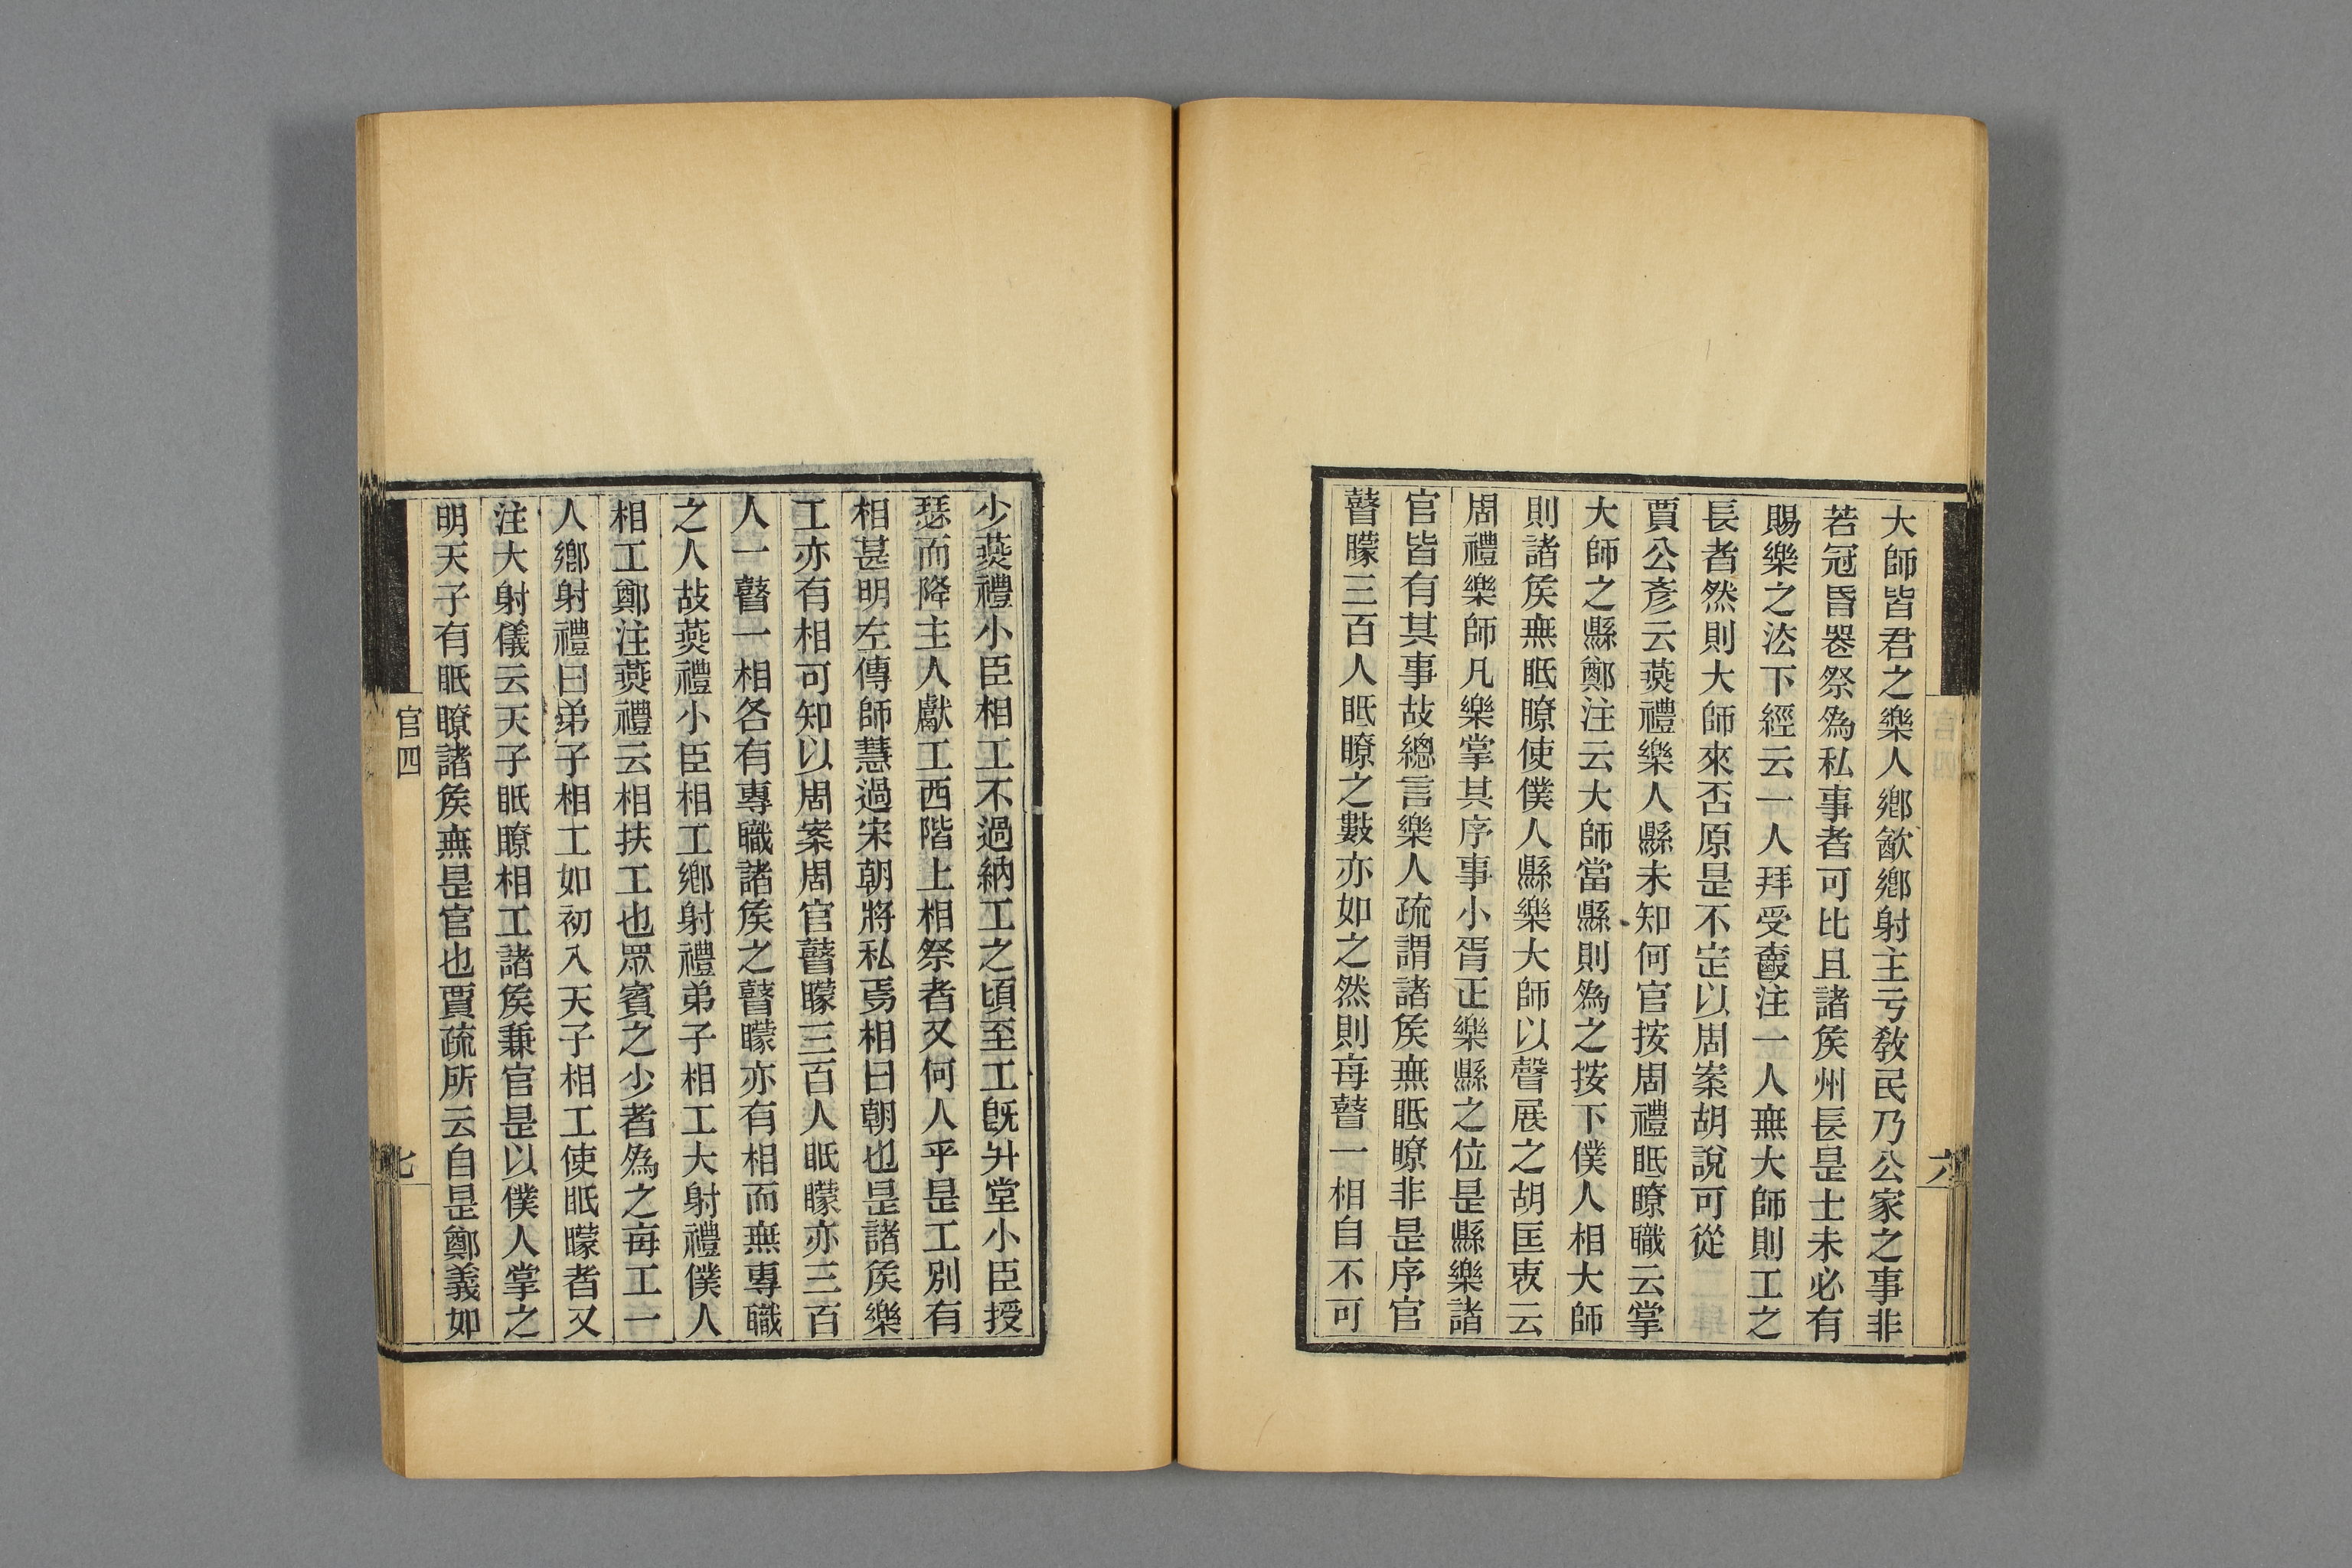 大師皆君之樂人鄉歙鄉射主亏敎民乃公家之事非
若冠昏器祭爲私事者可比且諸矦州長是士未必有
賜樂之法下經云一人拜受爵注一人無大師則工之
長者然則大師來否原是不定以周案胡說可從
賈公彥云燕禮樂人縣未知何官按周禮眂瞭職云掌
大師之縣鄭注云大師當縣則爲之按下僕人相大師
則諸矦無眂瞭使僕人縣樂大師以聲展之胡匡衷云
周禮樂師凡樂掌其序事小胥正樂縣之位是縣樂諸
官皆有其事故總言樂人疏謂諸矦無眂瞭非是序官
瞽矇三百人眂瞭之數亦如之然則每瞽一相自不可
六
少燕禮小臣相工不過納工之頃至工既升堂小臣授
瑟而降主人獻工西階上相祭者又何人乎是工別有
相甚明左傳師慧過宋朝將私焉相曰朝也是諸矦樂
工亦有相可知以周案周官瞽矇三百人眂矇亦三百
人一瞽一相各有專職諸矦之瞽矇亦有相而無專職
之人故燕禮小臣相工鄉射禮弟子相工大射禮僕人
相工鄭注燕禮云相扶工也眾賓之少者爲之每工一
人鄉射禮曰弟子相工如初入天子相工使眂矇者又
注大射儀云天子眂瞭相工諸矦兼官是以僕人掌之
明天子有眂瞭諸矦無是官也賈疏所云自是鄭義如
官四
七